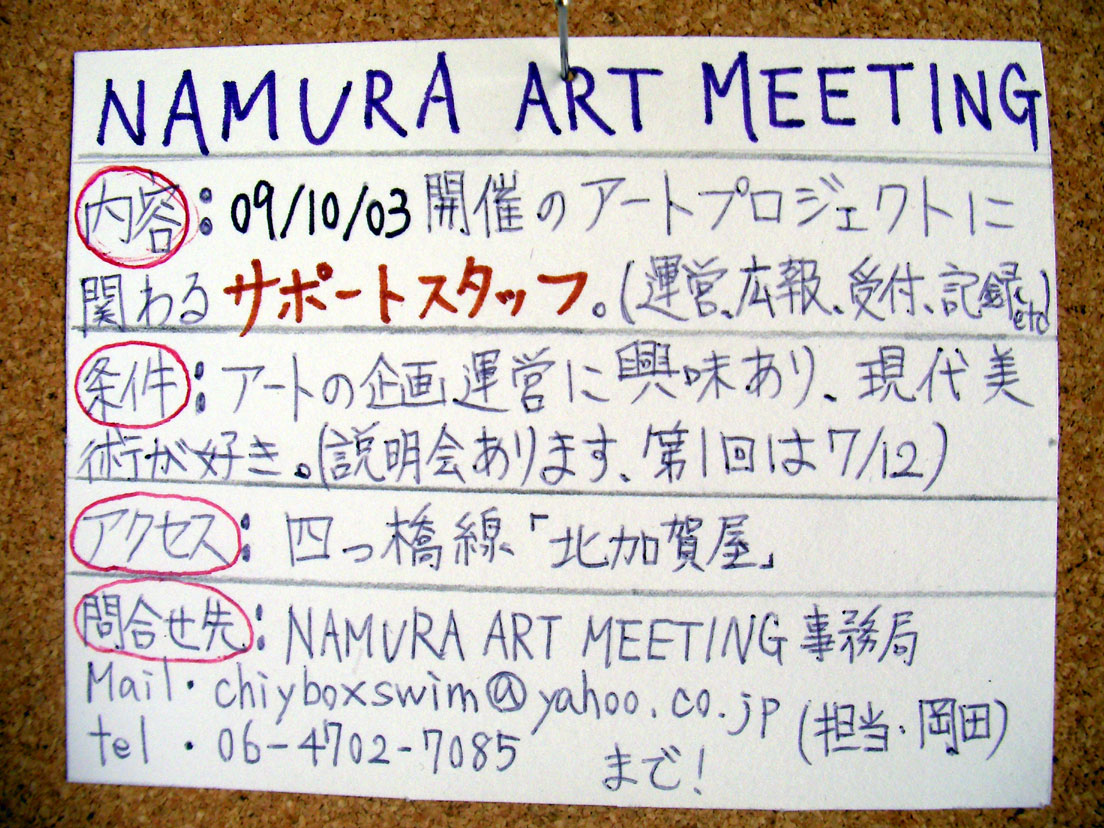 NAMURA ART MEETING
内容：09/10/03開催のアートプロジェクトに
関わるサポートスタッフ。(運営、広報、受付、記録etc)
条件：アートの企画運営に興味あり、現代美
術が好き。(説明会あります、第1回は7/12)
アクセス：四つ橋線「北加賀屋」
問合せ先：NAMURA ART MEETING 事務局
Mail・chiyboxswim@yahoo.co.jp (担当・岡田)
tel・06-4702-7085 まで!